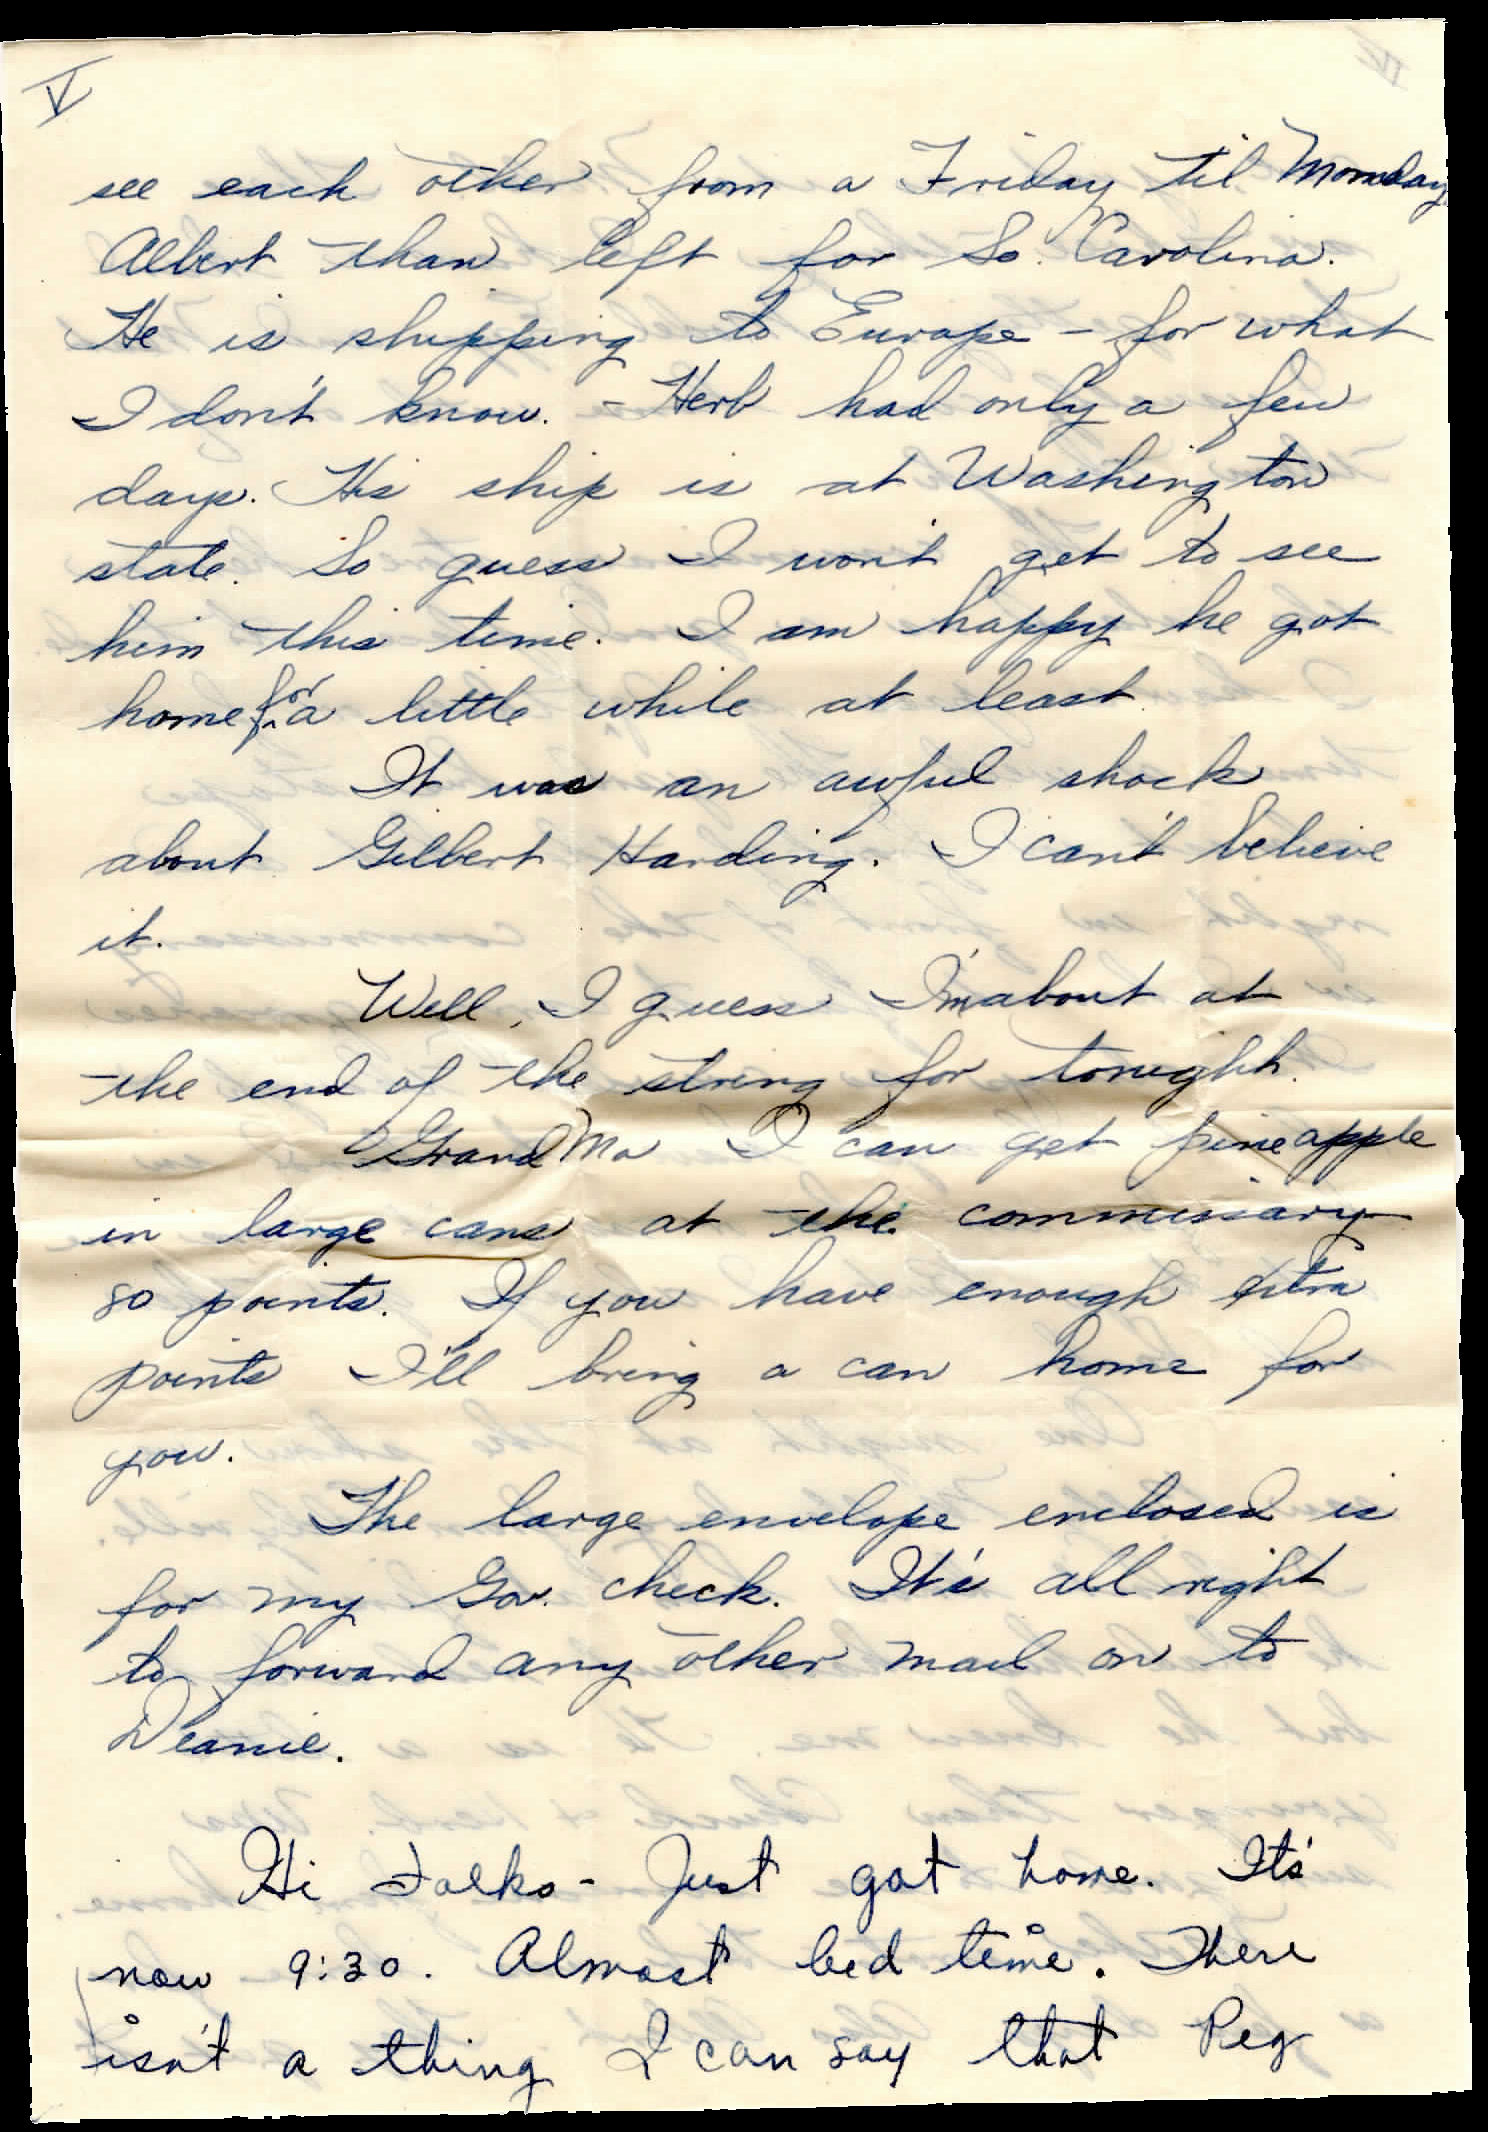 V
see each other from a Friday til Monday
Albert than left for So. Carolina.
He is shipping to Europe - for what
I don't know. - Herb had only a few
days. His ship is at Washington
state. So guess I won't get to see
him this time. I am happy he got
home for a little while at least.
It was an awful shock
about Gilbert Harding. I can't believe
it.
Well, I guess I'm about at
the end of the string for tonight.
Grand Ma I can get pineapple
in large cans at the commissary
80 points. If you have enough extra
points I'll bring a can home for
you.
The large envelope enclosed is
for my Gov. check. It's all right
to forward any other mail on to
Deanie.
Hi Folks - Just got home. It's
now 9:30. Almost bed time. There
isn't a thing I can say that Peg